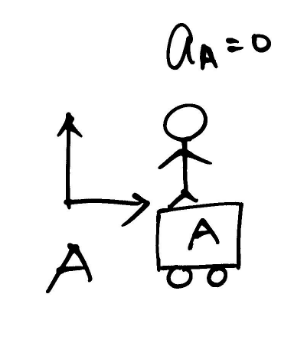 a_A = 0
A
A